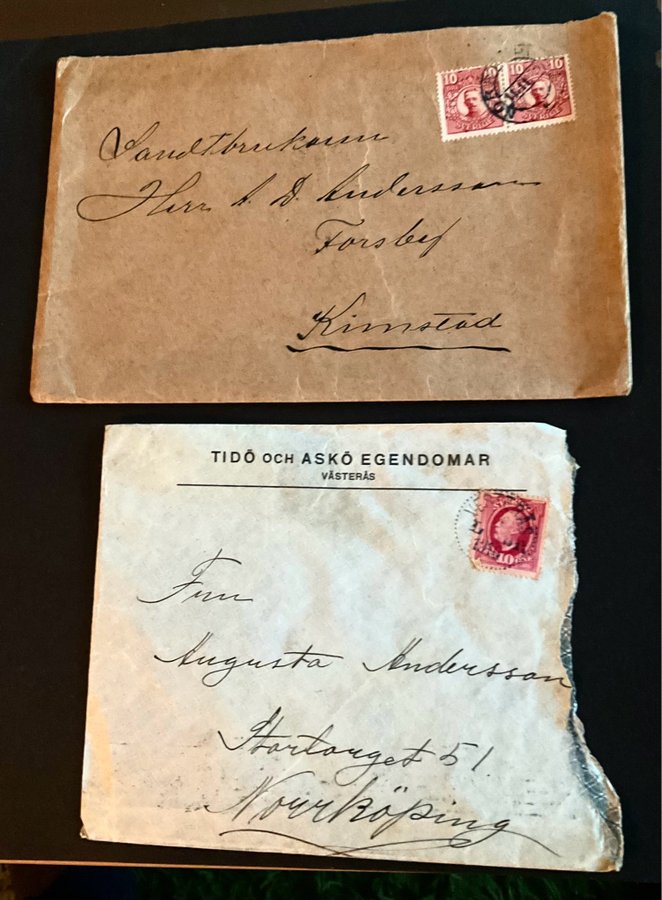 10 10
SVERIGE SVERIGE
Landtbrukaren
Herr A. D. Andersson
Forsby
Kimstad
TIDÖ OCH ASKÖ EGENDOMAR
VÄSTERÅS
10
Fru
Augusta Andersson
Stortorget 51
Norrköping